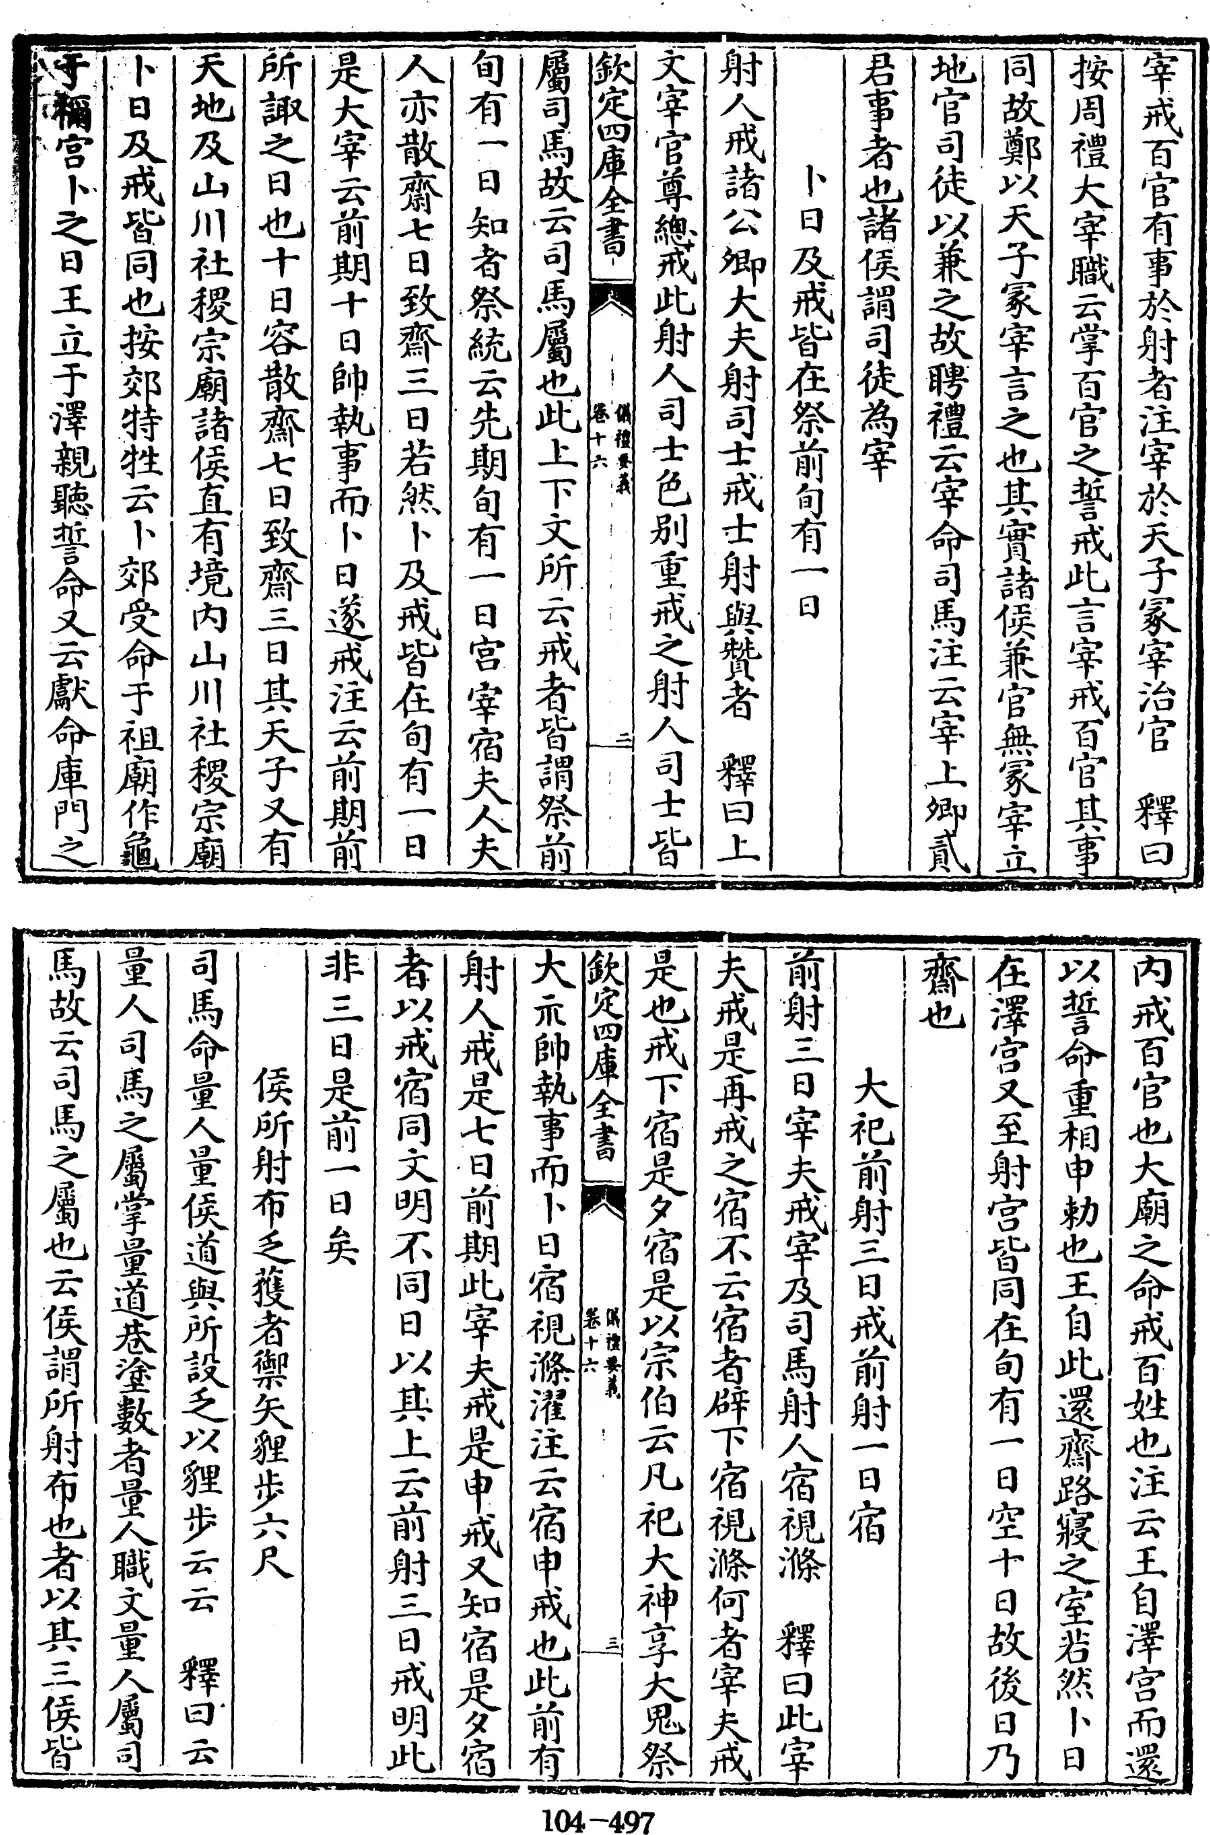 宰戒百官有事於射者注宰於天子冢宰治官　釋曰
按周禮大宰職云掌百官之誓戒此言宰戒百官其事
同故鄭以天子冢宰言之也其實諸侯兼官無冢宰立
地官司徒以兼之故聘禮云宰命司馬注云宰上卿貳
君事者也諸侯謂司徒為宰
卜日及戒皆在祭前旬有一日
射人戒諸公卿大夫射司士戒士射與贊者　釋曰上
文宰官尊總戒此射人司士色別重戒之射人司士皆
欽定四庫全書
儀禮要義
卷十六
二
屬司馬故云司馬屬也此上下文所云戒者皆謂祭前
旬有一日知者祭統云先期旬有一日宮宰宿夫人夫
人亦散齋七日致齋三日若然卜及戒皆在旬有一日
是大宰云前期十日帥執事而卜日遂戒注云前期前
所諏之日也十日容散齋七日致齋三日其天子又有
天地及山川社稷宗廟諸侯直有境内山川社稷宗廟
卜日及戒皆同也按郊特牲云卜郊受命于祖廟作龜
于禰宮卜之日王立于澤親聽誓命又云獻命庫門之
内戒百官也大廟之命戒百姓也注云王自澤宮而還
以誓命重相申勅也王自此還齋路寢之室若然卜日
在澤宮又至射宮皆同在旬有一日空十日故後日乃
齋也
大祀前射三日戒前射一日宿
前射三日宰夫戒宰及司馬射人宿視滌　釋曰此宰
夫戒是再戒之宿不云宿者辟下宿視滌何者宰夫戒
是也戒下宿是夕宿是以宗伯云凡祀大神享大鬼祭
欽定四庫全書
儀禮要義
卷十六
三
大示帥執事而卜日宿視滌濯注云宿申戒也此前有
射人戒是七日前期此宰夫戒是申戒又知宿是夕宿
者以戒宿同文明不同日以其上云前射三日戒明此
非三日是前一日矣
侯所射布乏獲者禦矢貍步六尺
司馬命量人量侯道與所設乏以貍步云云　釋曰云
量人司馬之屬掌量道巷塗數者量人職文量人屬司
馬故云司馬之屬也云侯謂所射布也者以其三侯皆
104-497